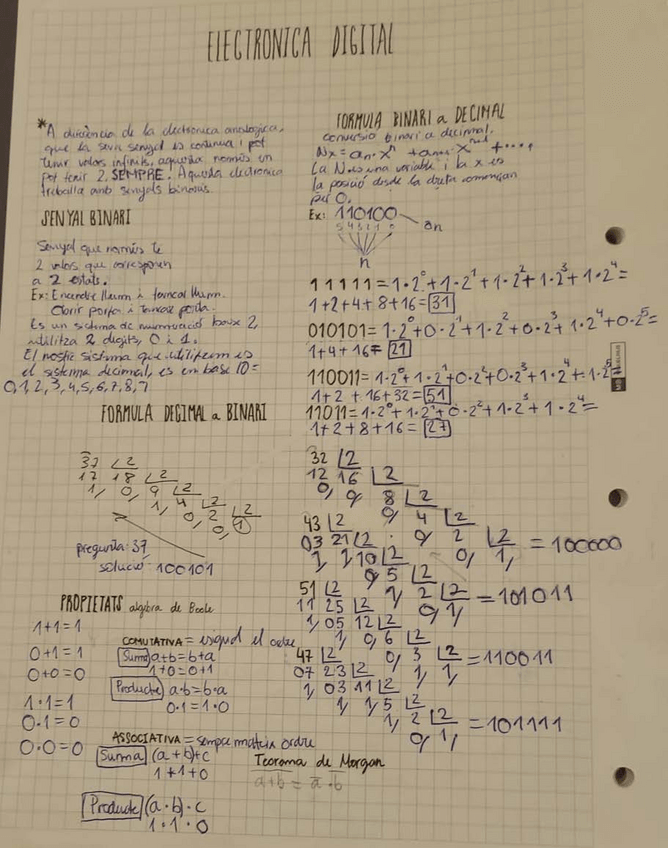 ELECTRONICA DIGITAL
*A diferència de la electronica analogica,
que la seva senyal es continua i pot
tenir valors infinits, aquesta només en
pot tenir 2. SEMPRE. Aquesta electronica
treballa amb senyals binaris.
SENYAL BINARI
Senyal que només té
2 valors que corresponen
a 2 estats.
Ex: Encendre llum i tancar llum.
Obrir porta i tancar porta.
Es un sistema de numeració base 2,
utilitza 2 digits, 0 i 1.
El nostre sistema que utilitzem es
el sistema decimal, es en base 10=
0,1,2,3,4,5,6,7,8,
FORMULA DECIMAL a BINARI
37 2
17 18 2
1, 0, 9 2
1, 4 2
0, 2 2
0, 1
pregunta: 37
solució: 100101
PROPIETATS algebra de Boole
1+1=1
0+1=1
0+0=0
1·1=1
0·1=0
0·0=0
COMUTATIVA = el ordre
Suma a+b=b+a
1+0=0+1
Producte a·b=b·a
0·1=1·0
ASSOCIATIVA = sempre mateix ordre
Suma (a+b)+c
1+1+0
Producte (a·b)·c
1·1·0
FORMULA BINARI a DECIMAL
conversió binari a decimal.
Nx = an·xⁿ + an-1·xⁿ⁻¹ + ....,
La N es una variable i la x es
la posició desde la dreta començan
per 0.
Ex: 110100 an
5 4 3 2 1 0
n
11111 = 1·2⁰+1·2¹+1·2²+1·2³+1·2⁴=
1+2+4+8+16= 31
010101= 1·2⁰+0·2¹+1·2²+0·2³+1·2⁴+0·2⁵=
1+4+16= 21
110011= 1·2⁰+1·2¹+0·2²+0·2³+1·2⁴+1·2⁵
1+2+16+32= 51
11011= 1·2⁰+1·2¹+0·2²+1·2³+1·2⁴=
1+2+8+16= 27
32 2
12 16 2
0, 0, 8 2
0, 4 2
43 2
03 21 2 0, 2 2
1, 1, 10 2 0, 1, = 100000
0, 5 2
51 2 1, 2 2 = 101011
11 25 2 0, 1,
1, 05 12 2
1, 0, 6 2
47 2 0, 3 2 = 110011
07 23 2 1, 1,
1, 03 11 2
1, 1, 5 2
1, 2 2 = 101111
0, 1,
Teorema de Morgan
a+b = a̅·b̅